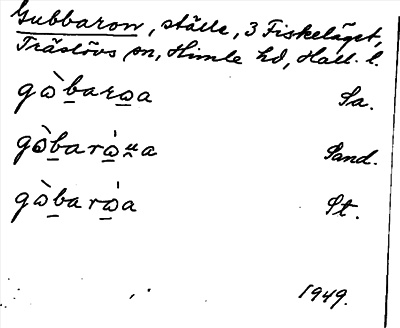 Gubbaron, ställe, 3 Fiskeläget,
Träslövs sn, Himle hd, Hall. l.
gὼb̲arο̲a Sa.
gὼb̲arὼ̲ṵa Sand.
gὼb̲arώ̲a St.
1949.